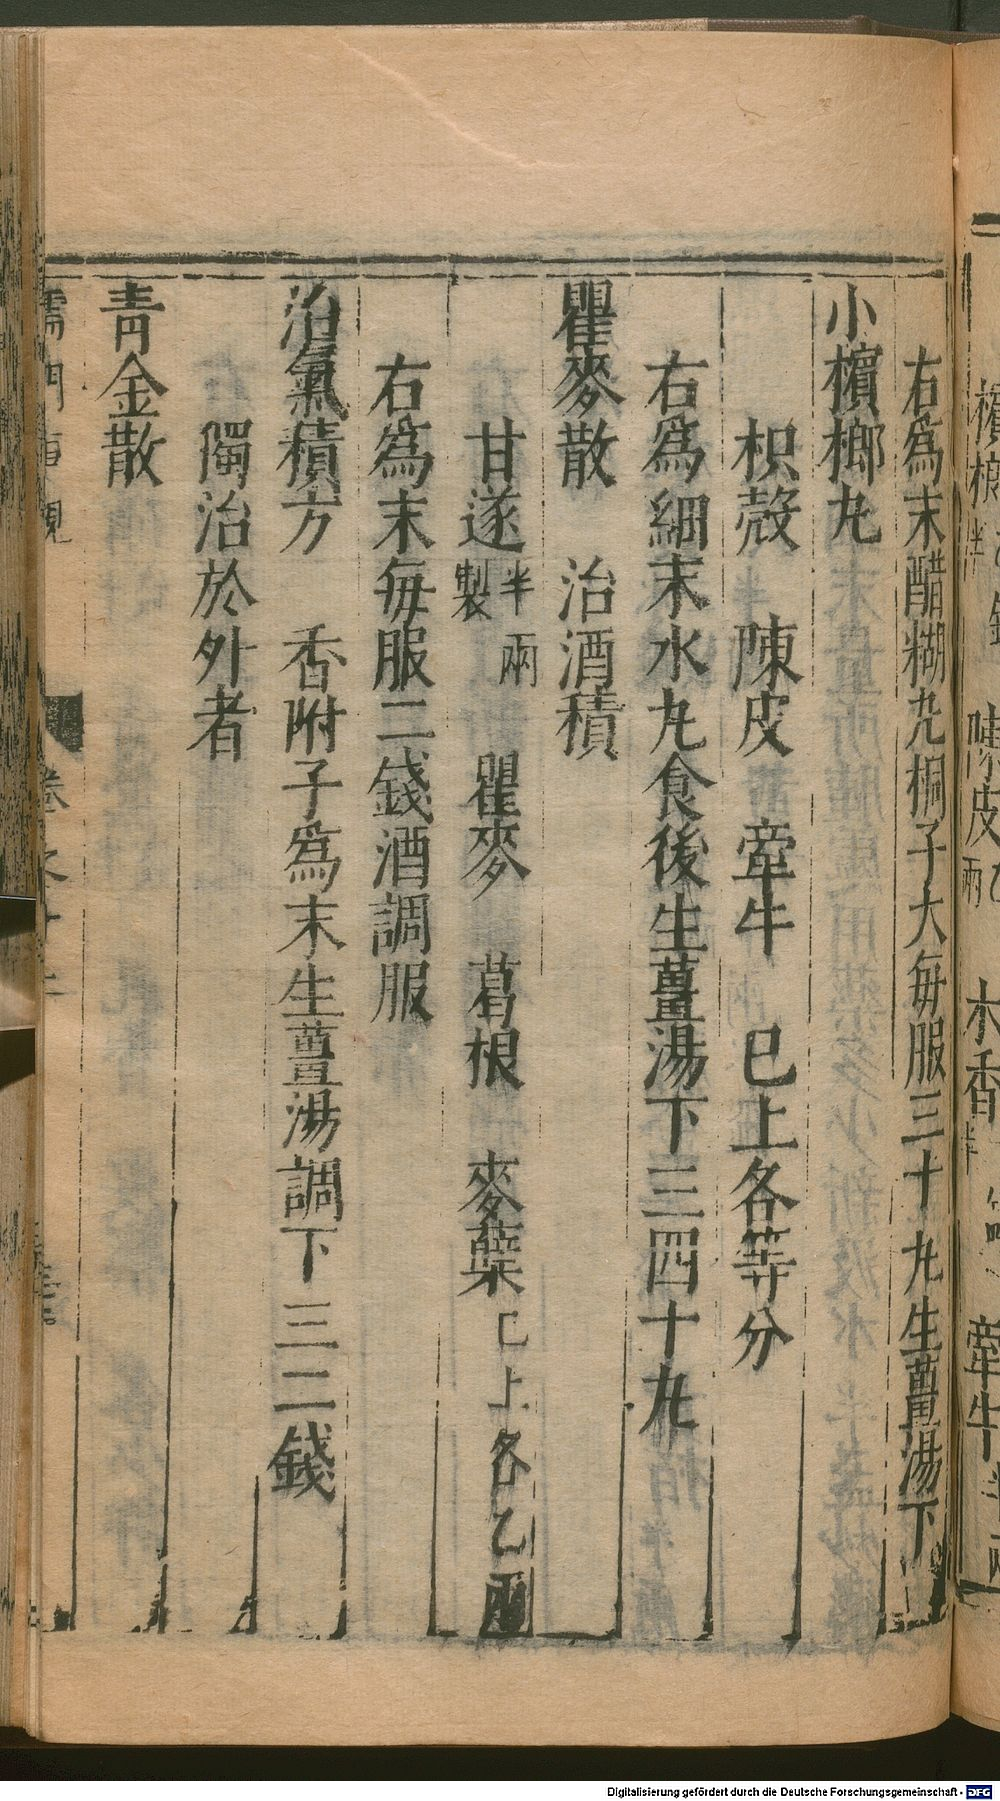 右爲末醋糊丸桐子大每服三十丸生薑湯下
小檳榔丸
枳殼　陳皮　牽牛　已上各等分
右爲細末水丸食後生薑湯下三四十丸
瞿麥散　治酒積
甘遂半兩製　瞿麥　葛根　麥蘗已上各乙兩
右爲末每服二錢酒調服
治氣積方　香附子爲末生薑湯調下三二錢
獨治於外者
青金散
卷之十二
陳皮
木香
牽牛
Digitalisierung gefördert durch die Deutsche Forschungsgemeinschaft - DFG